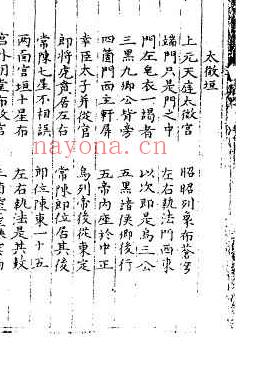 太微垣
上元天庭太微宮 昭昭列象布蒼穹
端門只是門之中 左右執法門西東
門左皂衣一謁者 以次即是烏三公
三黑九卿公背旁 五黑諸侯卿後行
四箇門西主軒屏 五帝內座於中正
幸臣太子并從官 烏列帝後從東定
郎將虎賁居左右 常陳郎位居其後
常陳七星不相誤 郎位陳東一十五
兩面宮垣十星布 左右執法是其數
宮外明堂布政宮
nayona.cn